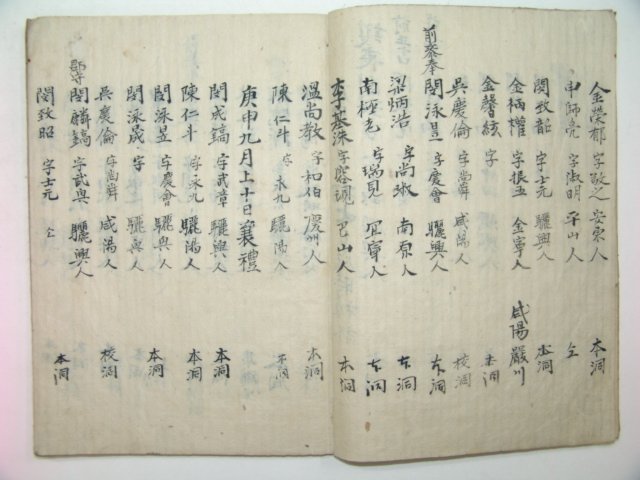 金榮郁 字敬之 安東人 本洞
申師亮 字淑明 平山人 仝
閔致韶 字士元 驪興人 本洞
金柄權 字振五 金寧人 咸陽嚴川
金馨絃 字 本洞
吳慶倫 字尚舜 咸陽人 校洞
前參奉 閔泳昱 字慶會 驪興人 本洞
梁炳浩 字尚淑 南原人 本洞
南極元 字瑞見 宜寧人 本洞
李基洙 字 巴山人 本洞
溫尚敎 字和伯 慶州人 本洞
陳仁斗 字永九 驪陽人 本洞
庚申九月上十日襄禮
閔成鎬 字武章 驪興人 本洞
陳仁斗 字永九 驪陽人 本洞
閔泳昱 字慶會 驪興人 本洞
閔泳晟 字 驪興人
吳慶倫 字尚舜 咸陽人 校洞
郡守 閔麟鎬 字武與 驪興人
閔致昭 字士元 仝 本洞